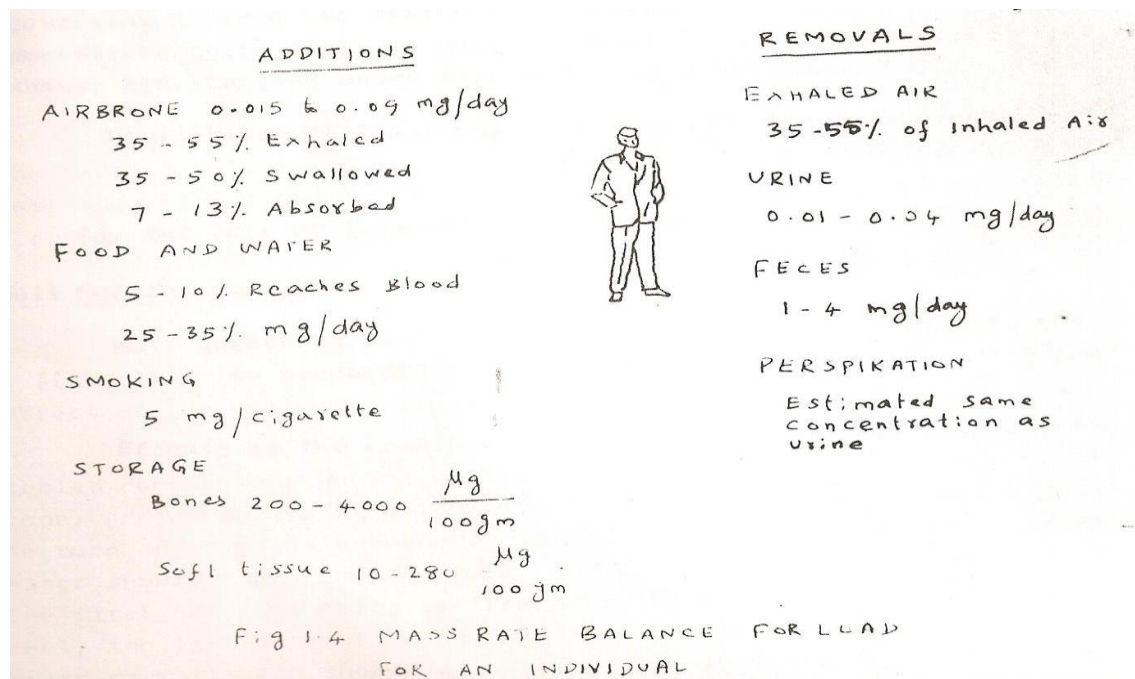 ADDITIONS
AIRBRONE 0.015 to 0.09 mg/day
35 - 55% Exhaled
35 - 50% Swallowed
7 - 13% Absorbed
FOOD AND WATER
5 - 10% Reaches Blood
25 - 35% mg/day
SMOKING
5 mg/cigarette
STORAGE
Bones 200 - 4000 µg/100gm
Soft tissue 10-280 µg/100 gm
REMOVALS
EXHALED AIR
35 - 55% of Inhaled Air
URINE
0.01 - 0.04 mg/day
FECES
1 - 4 mg/day
PERSPIKATION
Estimated same
concentration as
urine
Fig 1.4 MASS RATE BALANCE FOR LEAD
FOR AN INDIVIDUAL